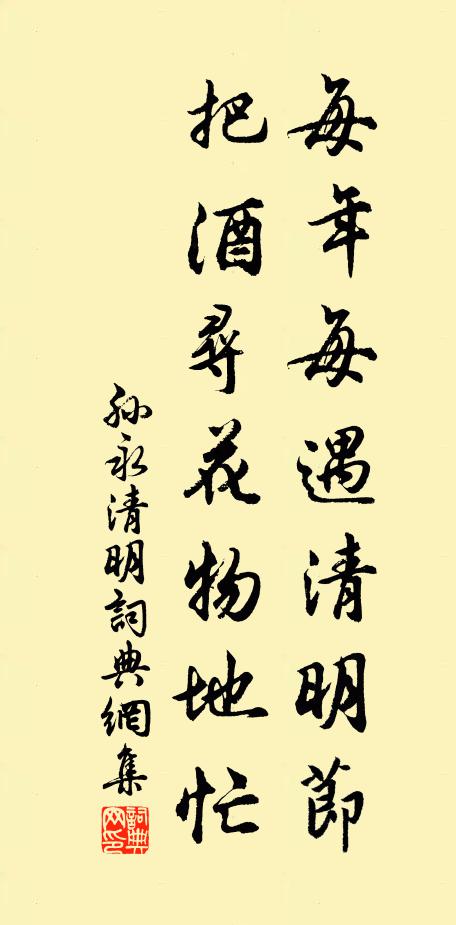 每年每遇清明節
把酒尋花物地忙
孙永清明詞典網集
詞典网印